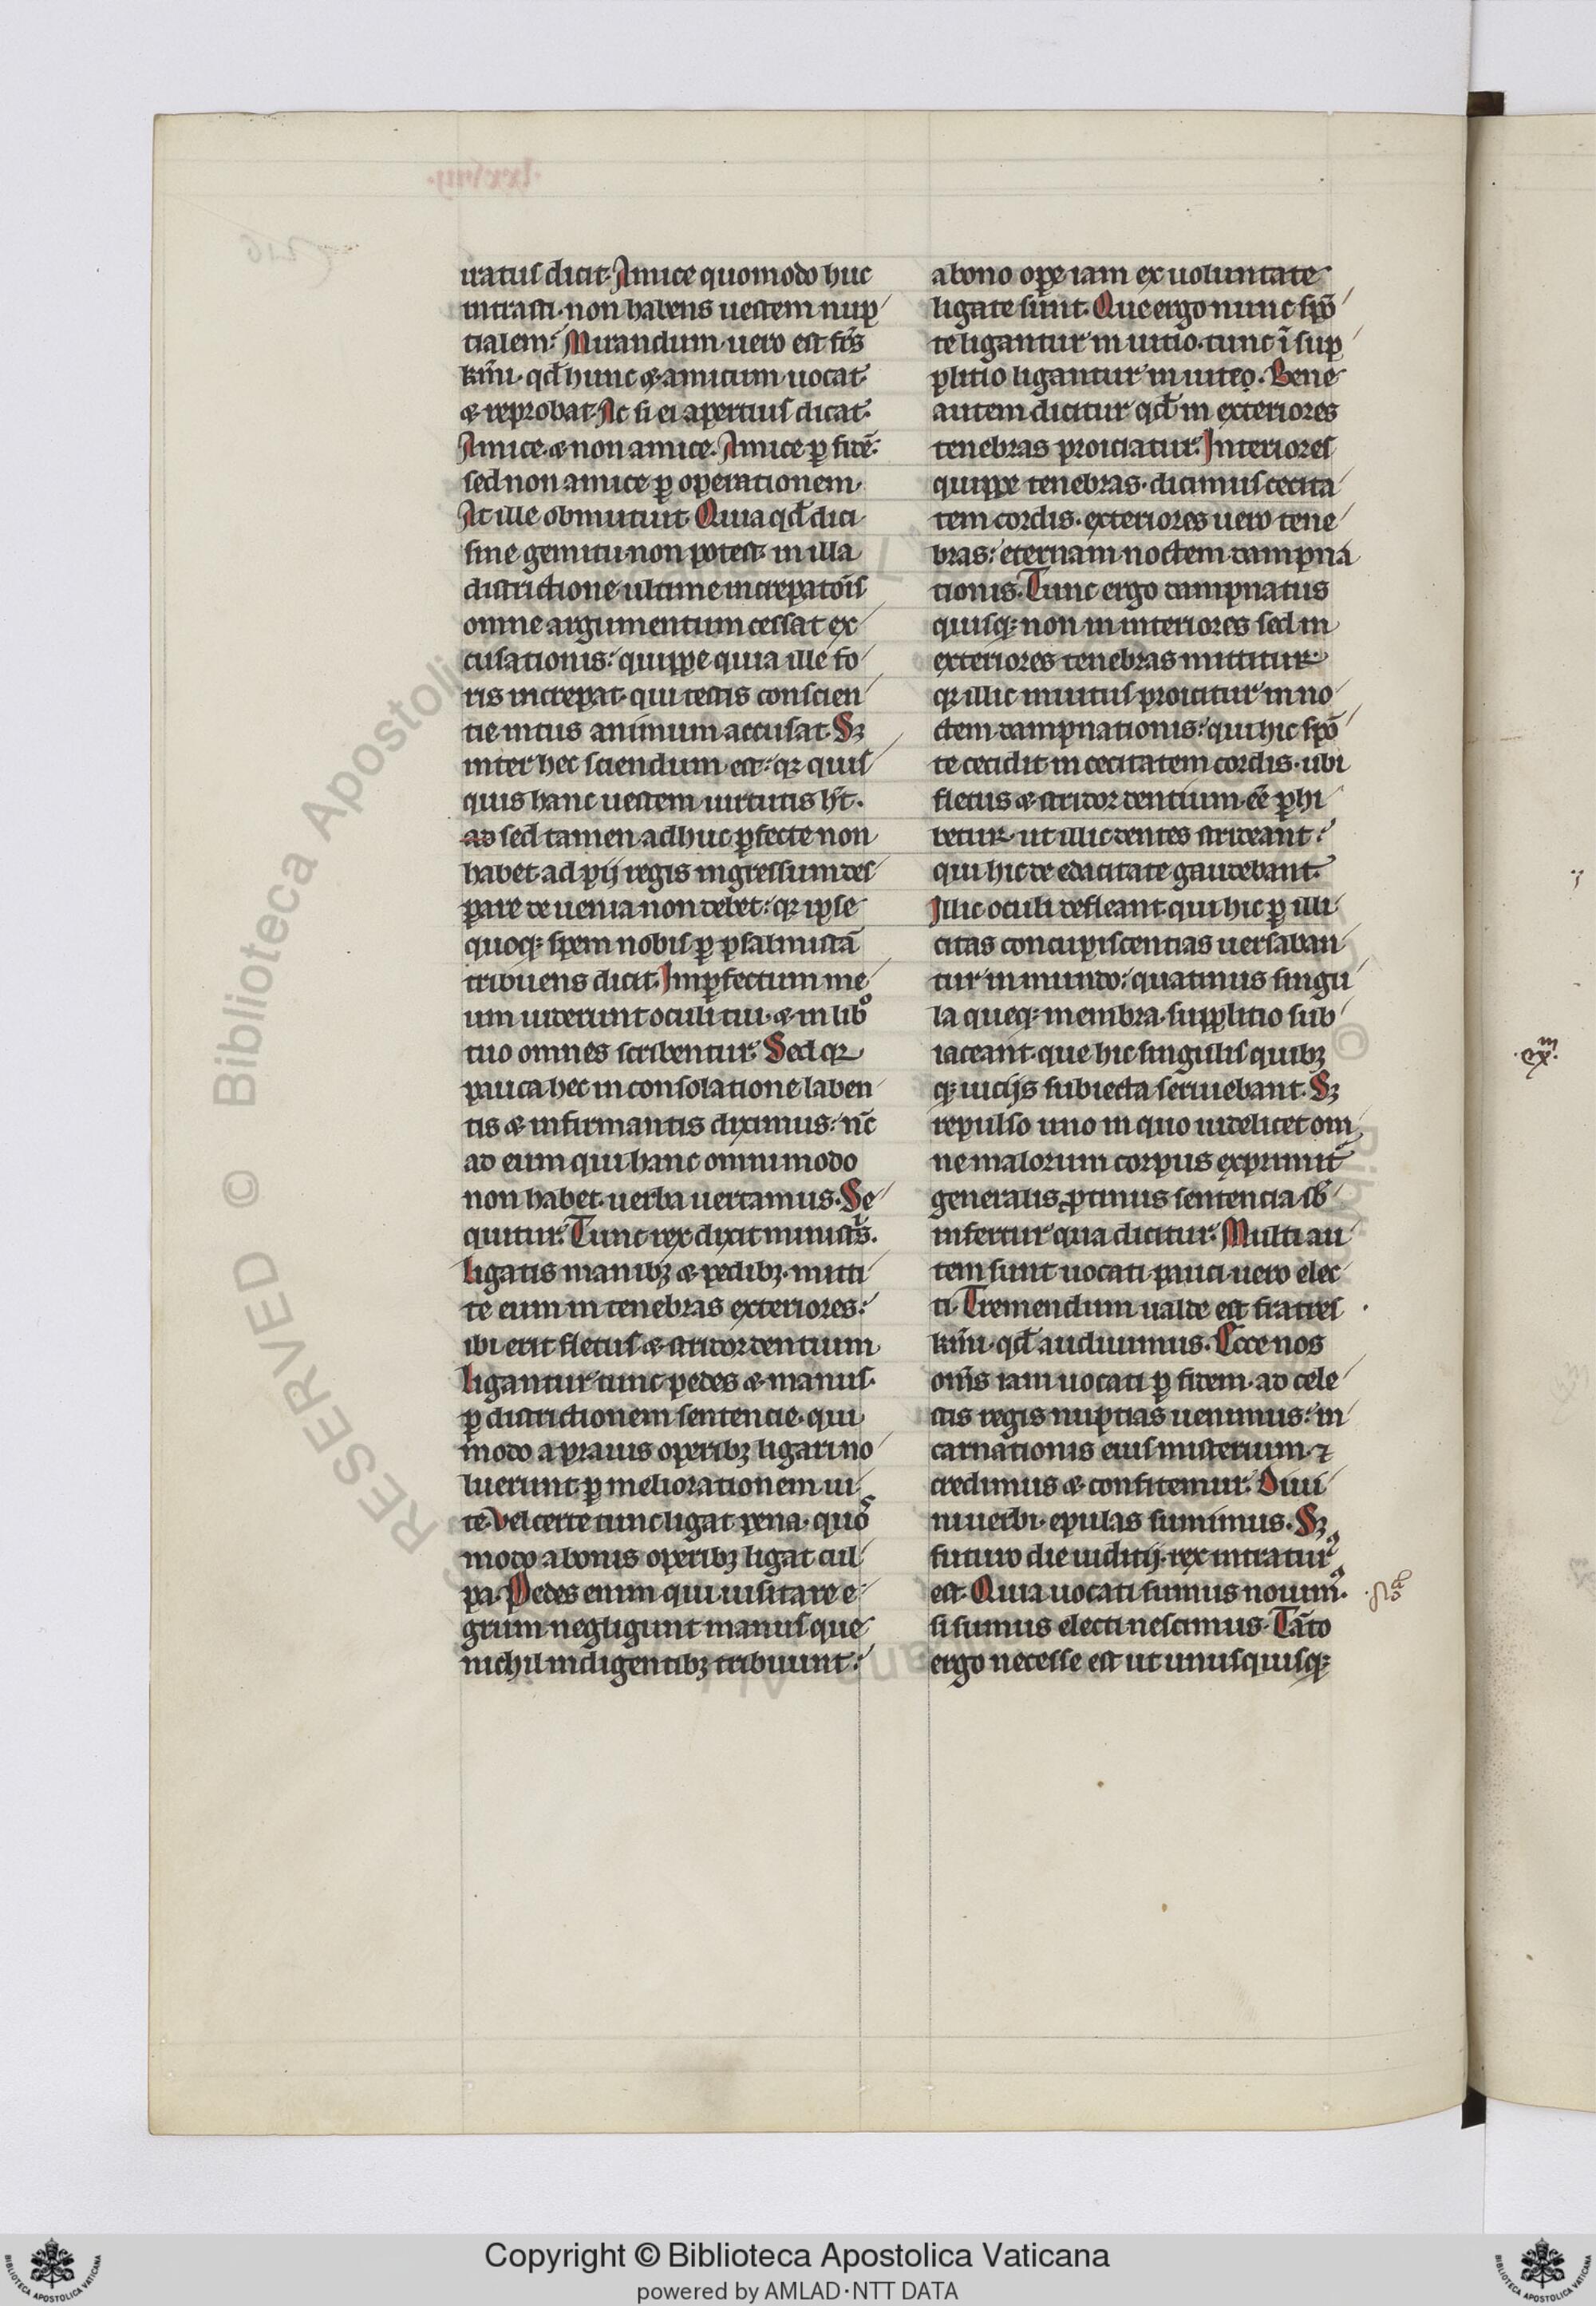 iratus dicit. Amice quomodo huc
intrasti. non habens uestem nup
tialem? Mirandum uero est fr̄s
km̄i. qd̄ hunc & amicum uocat.
& reprobat. Ac si ei apertius dicat.
Amice. & non amice. Amice ꝑ fidē.
sed non amice ꝑ operationem.
At ille obmutuit. Quia qd̄ dici
sine gemitu non potest. in illa
districtione ultime increpatōis
omne argumentum cessat ex
cusationis. quippe quia ille fo
ris increpat. qui testis conscien
tie intus animum accusat. Sꝫ
inter hec sciendum est. qꝛ quis
quis hanc uestem uirtutis hт̄.
ad sed tamen adhuc ꝑfecte non
habet. ad pij regis ingressum des
ꝑare de uenia non debet. qꝛ ipse
quoqꝫ spem nobis ꝑ psalmistā
tribuens dicit. Imꝑfectum me
um uiderunt oculi tui. & in libº
tuo omnes scribentur. Sed qꝛ
pauca hec in consolatione laben
tis & infirmantis diximus. nc̄
ad eum qui hanc omnimodo
non habet. uerba uertamus. Se
quitur. Tunc rex dixit ministͥs.
Ligatis manibꝫ & pedibꝫ. mitti
te eum in tenebras exteriores.
ibi erit fletus & stridor dentium
Ligantur tunc pedes & manus.
ꝑ districtionem sentencie. qui
modo a prauis operibꝫ ligari no
luerunt. ꝑ meliorationem ui
te. Vel certe tunc ligat pena. quoˢ
modo a bonis operibꝫ ligat cul
pa. Pedes enim qui uisitare e
grum negligunt manus que
nichil indigentibꝫ tribuunt.
a bono oꝑe iam ex uoluntate
ligate sunt. Que ergo nunc spō
te ligantur in uitio. tunc ī sup
plitio ligantur in uiteo. Bene
autem dicitur qd̄ in exteriores
tenebras proiciatur. Interiores
quippe tenebras. dicimus cecita
tem cordis. exteriores uero tene
bras. eternam noctem dampna
tionis. Tunc ergo dampnatus
quisqꝫ non in interiores sed in
exteriores tenebras mittitur.
qꝛ illic inuitus proicitur in no
ctem dampnationis. qui hic spō
te cecidit in cecitatem cordis. ubi
fletus & stridor dentium eē ꝑhi
betur. ut illic dentes strideant.
qui hic de edacitate gaudebant.
Illic oculi defleant. qui hic ꝑ illi
citas concupiscentias uersaban
tur in mundo. quatinus singu
la queqꝫ membra. supplitio sub
iaceant. que hic singulis quibꝫ
qꝫ uicijs subiecta seruiebant. Sꝫ
repulso uno in quo uidelicet om
ne malorum corpus exprimit
generalis ꝓtinus sentencia sb̄
infertur qua dicitur. Multi au
tem sunt uocati. pauci uero elec
ti. Tremendum ualde est fratres
km̄i. qd̄ audiuimus. Ecce nos
om̄s iam uocati ꝑ fidem. ad cele
stis regis nuptias uenimus. in
carnationis eius misterium. ⁊
credimus & confitemur. Diui
ni uerbi. epulas sumimus. Sꝫ
futuro die iuditij. rex intraturꝰ
est. Quia uocati sumus nouimꝰ.
si sumus electi nescimus. Tāto
ergo necesse est ut unusquisqꝫ
Copyright © Biblioteca Apostolica Vaticana
powered by AMLAD・NTT DATA